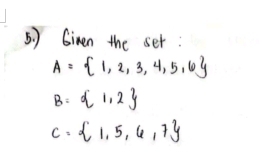 5.) Given the set :
A = { 1, 2, 3, 4, 5, 6 }
B = { 1, 2 }
C = { 1, 5, 6, 7 }